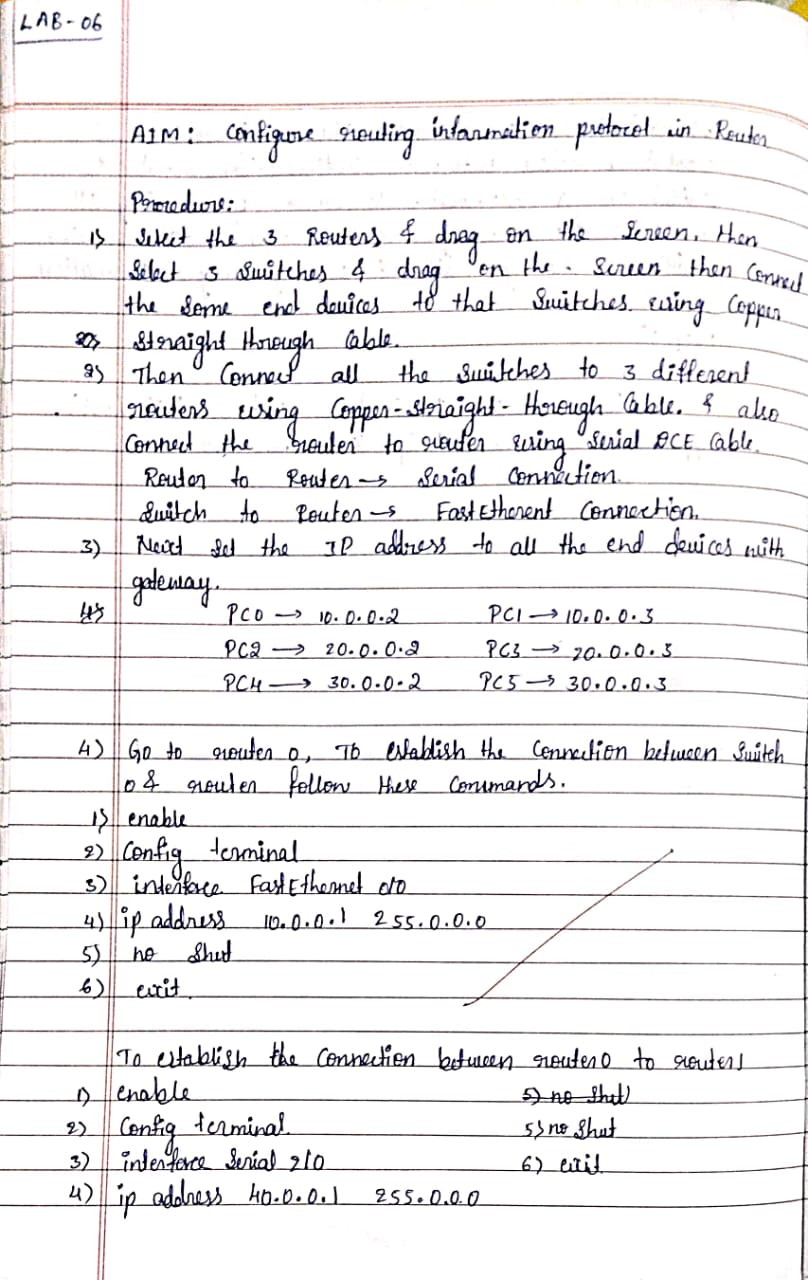 LAB-06
AIM: Configure routing information protocol in Router
Procedure:
1) Select the 3 Routers & drag on the Screen, then
Select 3 Switches & drag on the Screen then Connect
the Some end devices to that Switches using Copper
Straight through Cable.
2) Then Connect all the Switches to 3 different
routers using Copper-Straight-through Cable. & also
Connect the router to router using Serial DCE Cable.
Router to Router → Serial Connection.
Switch to Router → FastEtherent Connection.
3) Next Set the IP address to all the end devices with
gateway.
PC0 → 10.0.0.2 PC1 → 10.0.0.3
PC2 → 20.0.0.2 PC3 → 20.0.0.3
PC4 → 30.0.0.2 PC5 → 30.0.0.3
4) Go to router 0, To establish the Connection between Switch
0 & router follow these Commands.
1) enable
2) Config terminal
3) interface FastEthernet 0/0
4) ip address 10.0.0.1 255.0.0.0
5) no Shut
6) exit
To establish the Connection between router0 to router1
1) enable 5) no Shut
2) Config terminal 5) no Shut
3) interface Serial 2/0 6) exit
4) ip address 40.0.0.1 255.0.0.0